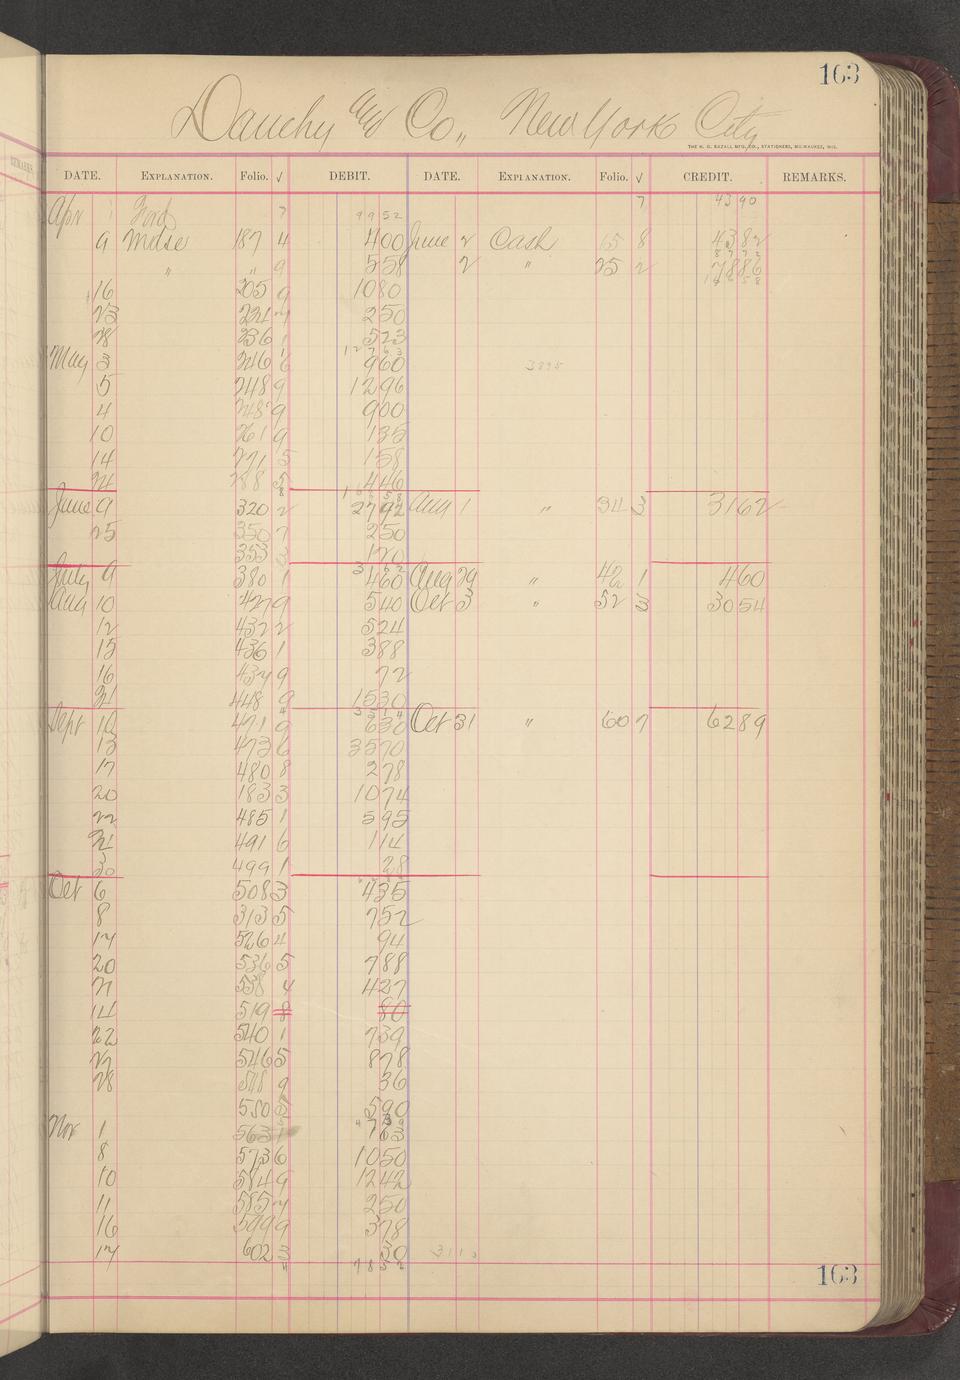 163
Dauchy and Co., New York City
THE H. G. RAZALL MFG. CO., STATIONERS, MILWAUKEE, WIS.
DATE. EXPLANATION. Folio. √ DEBIT. DATE. EXPLANATION. Folio. √ CREDIT. REMARKS.
Apr 1 Ford 7 9952 7 4390
9 Mdse 187 4 400 June 2 Cash 15 8 4382
" " 9 558 2 " 25 2 7886
16 205 9 1080
23 224 7 250
28 236 1 523
May 3 246 6 960 3895
5 248 9 1296
4 248 9 900
10 261 9 135
14 271 5 158
24 288 5 446
June 9 320 2 2792 Aug 1 " 34 3 3162
25 350 7 250
353 3 120
July 9 380 1 460 Aug 29 " 42 1 460
Aug 10 427 9 540 Oct 3 " 52 3 3054
12 432 2 524
15 436 1 388
16 437 9 72
31 448 9 1530
Sept 10 471 9 630 Oct 31 " 60 7 6289
13 473 6 3570
17 480 8 278
20 183 3 1074
22 485 1 595
24 491 6 114
30 499 1 28
Oct 6 508 3 435
8 313 5 752
17 526 4 94
20 536 5 788
21 538 4 427
14 519 8 80
22 540 1 739
27 546 5 878
28 9 36
550 5 590
Nov 1 563 1 763
8 573 6 1050
10 584 9 1242
11 585 7 250
16 599 9 378
17 602 3 30 3113
7852
163